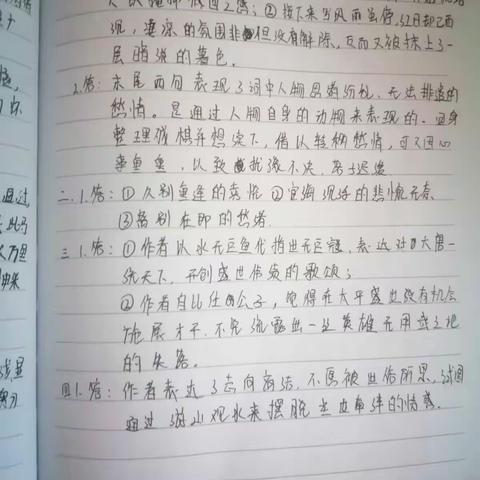 ②接下来写风雨虽停,红日却已西
沉,凄凉的氛围非但没有解除,反而又被抹上了一
层暗淡的暮色。
2.答:末尾两句表现了词中人物思绪纷乱、无法排遣的
愁情。是通过人物自身的动物来表现的。
整理残棋并想续下,借以转移愁情,可又因心
事重重,以致犹豫不决,落子迟迟
二.1.答:①久别重逢的喜悦②宦海沉浮的悲慨无奈、
③离别在即的愁绪.
三1.答:①作者以水无巨鱼代指世无巨寇,表达对大唐一
统天下,开创盛世伟绩的歌颂;
②作者自比任公子,觉得在太平盛世没有机会
施展才干.不免流露出一丝英雄无用武之地
的失落。
四1.答:作者表达了志向高洁,不愿被世俗所累,试图
通过游山观水来摆脱的情意.